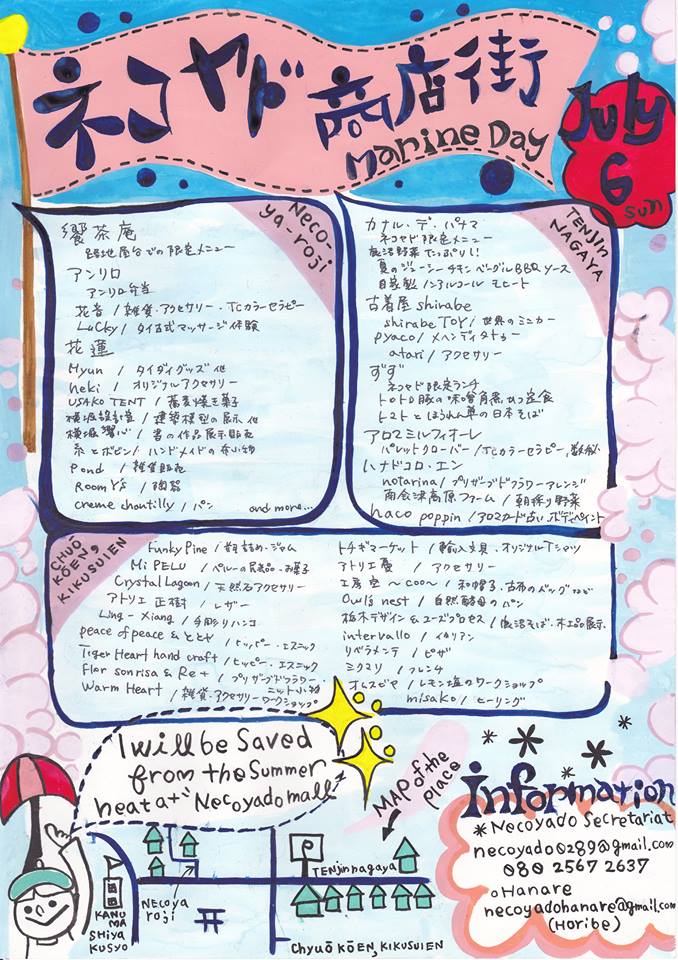 ネコヤド商店街
Marine Day
July
6
sun
Neco-
ya-roji
饗茶庵
路地屋台での限定メニュー
アンリロ
アンリロ弁当
花音/雑貨・アクセサリー・TCカラーセラピー
Lucky/タイ古式マッサージ体験
花蓮
Myun / タイダイグッズ 他
heki / オリジナルアクセサリー
USAKO TENT / 蕎麦焼き菓子
横坂設計堂 / 建築模型の展示 他
横坂響心 / 書の作品展示販売
糸とボビン / ハンドメイドの布小物
Pond / 雑貨販売
Room Y's / 陶器
creme chantilly / パン and more...
TENJIN
NAGAYA
カナル・デ・パナマ
ネコヤド限定メニュー
鹿沼野菜たっぷり!
夏のジューシーチキンベーグルBBQソース
自家製ノンアルコール モヒート
古着屋 shirabe
shirabe TOYi 世界のミニカー
pyaco/メヘンディタトゥー
atari / アクセサリー
ずず
ネコヤド限定ランチ
トマトとほうれん草の日本そば
アロマミルフィオーレ
パレットクローバー/TCカラーセラピー,数秘
ハナドコロ・エン
notarina/プリザーブドフラワーアレンジ
南会津高原ファーム / 朝採り野菜
haco poppin/アロマカード占い・ボディペイント
CHUŌ
KŌEN,
KIKUSUIEN
Funky Pine / 瓶詰め・ジャム
Mi PELU / ペルーの民芸品・お菓子
Crystal Lagoon / 天然石アクセサリー
アトリエ 正樹 / レザー
Ling-Xiang / 手彫りハンコ
peace of peace & ととや / ヒッピー・エスニック
Tiger Heart hand craft / ヒッピー・エスニック
Flor sonrisa & Re+ / プリザーブドフラワー・
ニット小物
Warm Heart / 雑貨・アクセサリーワークショップ
トチギマーケット / 輸入文具・オリジナルTシャツ
アトリエ慶 / アクセサリー
工房 空 〜coo〜 / 和帽子・古布のバッグなど
Owl's nest / 自然酵母のパン
栃木デザイン&ユーズプロセス / 鹿沼そば・木工品展示
intervallo / イタリアン
リベラメンテ / ピザ
ミクマリ / フレンチ
オムスビヤ / レモン塩のワークショップ
misako / ヒーリング
I will be saved
from the summer
heat at "Necoyado mall"
MAP of the
place
KANU
MA
SHIYA
KUSYO
NECOYA
roji
P
TENjin nagaya
Chyuō KōEN, KIKUSUIEN
information
*Necoyado Secretariat
necoyado0289@gmail.com
080 2567 2637
○Hanare
necoyadohanare@gmail.com
(Horibe)